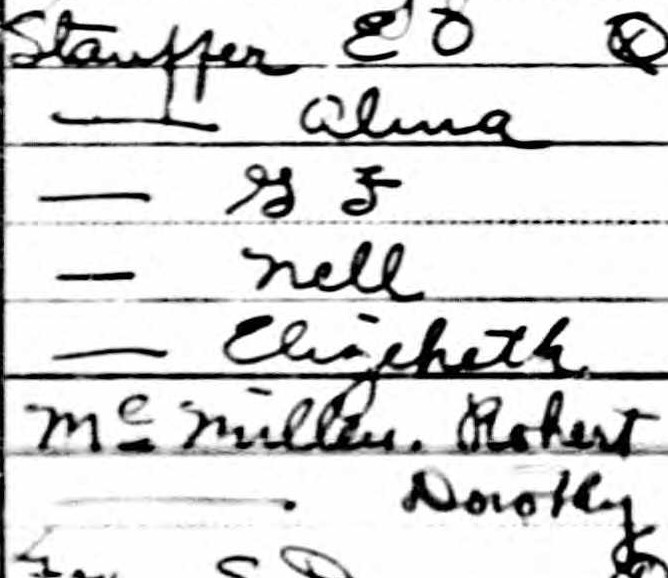 Stauffer E O Ⓧ
— Alma
— G F
— Nell
— Elizebeth
Mc Millen. Robert
— . Dorothy